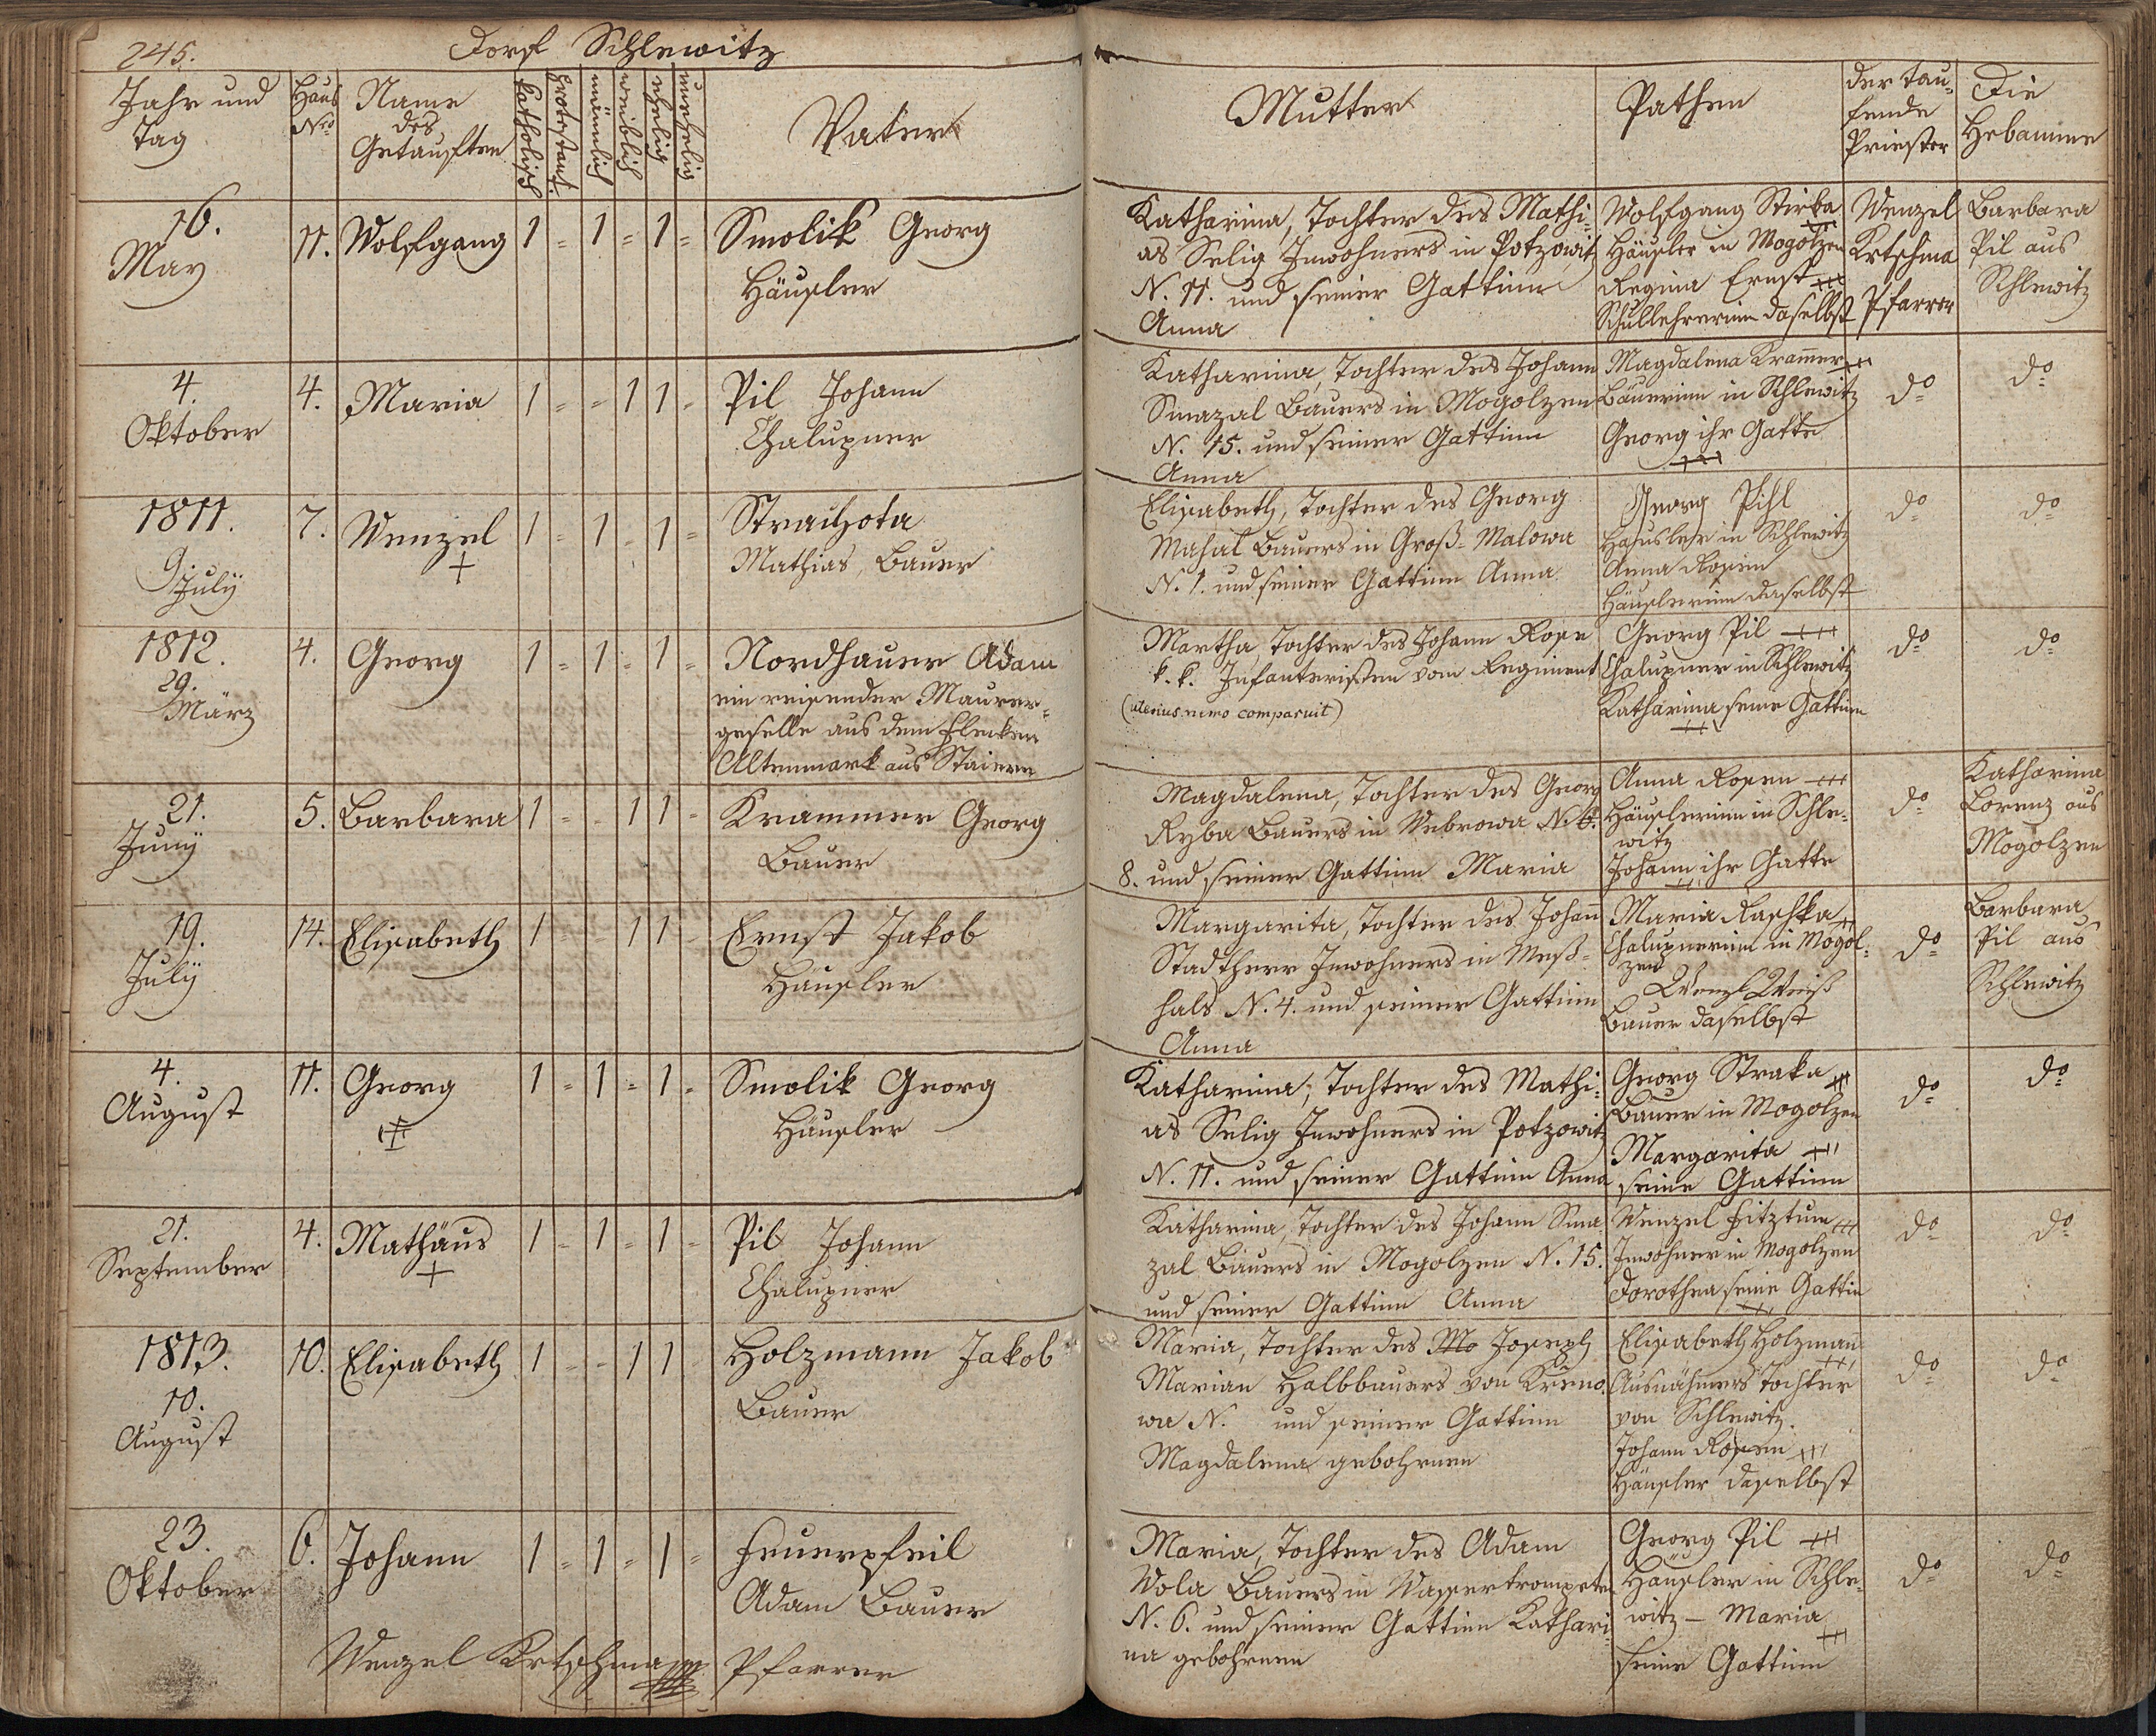 245.
Dorf Schlewitz
Jahr und
Tag
Haus
Nro
Name
des
Getauften
katholisch
Protestant.
männlich
weiblich
ehelig
unehelig
Vater
Mutter
Pathen
der tau-
fende
Priester
Die
Hebamme
16.
May
11.
Wolfgang
1 = 1 = 1 =
Smolik Georg
Häusler
Katharina, Tochter des Mathi-
as Selig Inwohners in Potzowitz
N. 11. und seiner Gattinn
Anna
Wolfgang Stirba
Häusler in Mogolzen
Regina Ernst +++
Schullehrerinn daselbst
Wenzel
Krtschma
Pfarrer
Barbara
Pil aus
Schlewitz
4.
Oktober
4.
Maria
1 = - 1 1 -
Pil Johann
Chalupner
Katharina, Tochter des Johann
Smazal Bauers in Mogolzen
N. 15. und seiner Gattinn
Anna
Magdalena Kramer +++
Bäuerinn in Schlewitz
Georg ihr Gatte
+++
do
do
1811.
9.
July
7.
Wenzel
+
1 = 1 - 1 =
Strachota
Mathias, Bauer
Elisabeth, Tochter des Georg
Mahal Bauers in Groß-Malowa
N. 1. und seiner Gattinn Anna
Georg Pihl
Hausler in Schlewitz
Anna Rosin
Häuslerinn daselbst
do
do
1812.
29.
März
4.
Georg
1 = 1 = 1 =
Nordhauer Adam
ein reisender Maurer-
geselle aus dem Flecken
Altenmark aus Staiern
Martha, Tochter des Johann Rose
k. k. Infanteristen vom Regiment
(ulterius nemo comparuit)
Georg Pil +++
Chalupner in Schlewitz
Katharina seine Gattinn
+++
do
do
21.
Juny
5.
Barbara
1 = - 1 1 -
Krammer Georg
Bauer
Magdalena, Tochter des Georg
Ryba Bauers in Webrowa N.
8. und seiner Gattinn Maria
Anna Rosen +++
Häuslerinn in Schle-
witz
Johann ihr Gatte
do
Katharina
Lorenz aus
Mogolzen
19.
July
14.
Elisabeth
1 = - 1 1 -
Ernst Jakob
Häusler
Margarita, Tochter des Johann
Stadtherr Inwohners in Meß-
hals N. 4. und seiner Gattinn
Anna
Maria Raschka
Chalupnerinn in Mogol-
zen
Wenzl Weiß
Bauer daselbst
do
Barbara
Pil aus
Schlewitz
4.
August
11.
Georg
1 = 1 = 1 -
Smolik Georg
Häusler
Katharina, Tochter des Mathi-
as Selig Inwohners in Potzowitz
N. 11. und seiner Gattinn Anna
Georg Straka +++
Bauer in Mogolzen
Margarita +++
seine Gattinn
do
do
21.
September
4.
Mathäus
+
1 - 1 = 1 -
Pil Johann
Chalupner
Katharina, Tochter des Johann Sma
zal Bauers in Mogolzen N. 15.
und seiner Gattinn Anna
Wenzel Fitztum +++
Inwohner in Mogolzen
Dorothea seine Gattin
do
do
1813.
10.
August
10.
Elisabeth
1 - - 1 1
Holzmann Jakob
Bauer
Maria, Tochter des Mo Joseph
Marian Halbbauers von Kreno-
wa N. und seiner Gattinn
Magdalena gebohrnen
Elisabeth Holzmann
+++
Ausnähmers Tochter
von Schlewitz.
Johann Rosen +++
Häusler daselbst
do
do
23.
Oktober
6.
Johann
1 = 1 = 1 =
Feuerpfeil
Adam Bauer
Maria, Tochter des Adam
Wola Bauers in Wassertrompeten
N. 6. und seiner Gattinn Kathari-
na gebohrnen
Georg Pil +++
Häusler in Schle-
witz - Maria
+++
seine Gattinn
do
do
Wenzel Krtschma Pfarrer